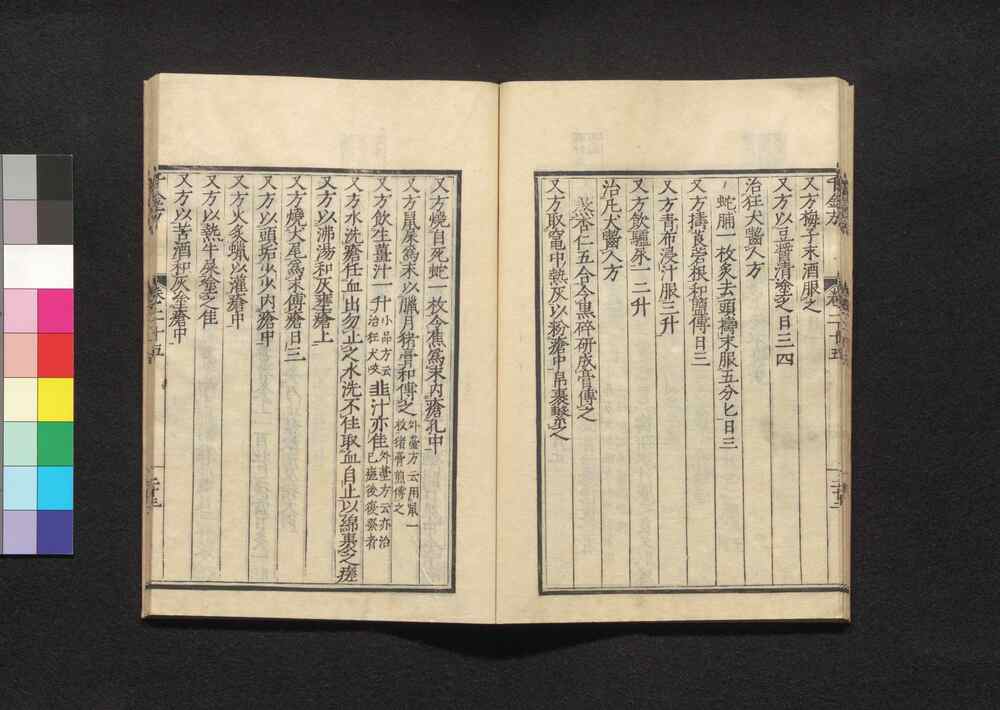 又方梅子末酒服之
又方以豆醬清塗之日三四
治狂犬齧人方
蛇脯一枚炙去頭擣末服五分匕日三
又方擣莨菪根和鹽傅日三
又方青布浸汁服三升
又方飲驢尿一二升
治凡犬齧人方
熬杏仁五合令黒碎研成膏傅之
又方取竈中熱灰以粉瘡中帛裹繫之
又方燒自死蛇一枚令焦爲末内瘡孔中
又方鼠屎爲末以臘月猪膏和傅之外臺方云用鼠一枚猪膏煎傅之
又方飲生薑汁一升小品方云治狂犬咬韭汁亦佳外臺方云亦治已瘥後復發者
又方水洗瘡任血出勿止之水洗不住取血自止以綿裹之瘥
又方以沸湯和灰壅瘡上
又方燒犬尾爲末傅瘡日三
又方以頭垢少少内瘡中
又方火炙蠟以灌瘡中
又方以熱牛屎塗之佳
又方以苦酒和灰塗瘡中
千金方
卷二十五
二十三